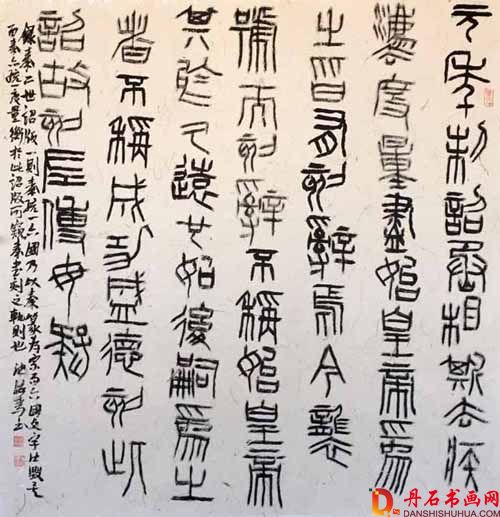 元年制詔丞相斯去疾
灋度量盡始皇帝爲
之皆有刻辭焉今襲
號而刻辭不稱始皇帝
其於久遠也如後嗣爲之
者不稱成功盛德刻此
詔故刻左使毋疑
錄秦二世詔版一則秦統一六國乃以秦篆爲宗而六國文字
而秦統一度量衡於此詔版可窺秦書刻之軌則也
丹石书画网
DANSHISHUHUA.COM